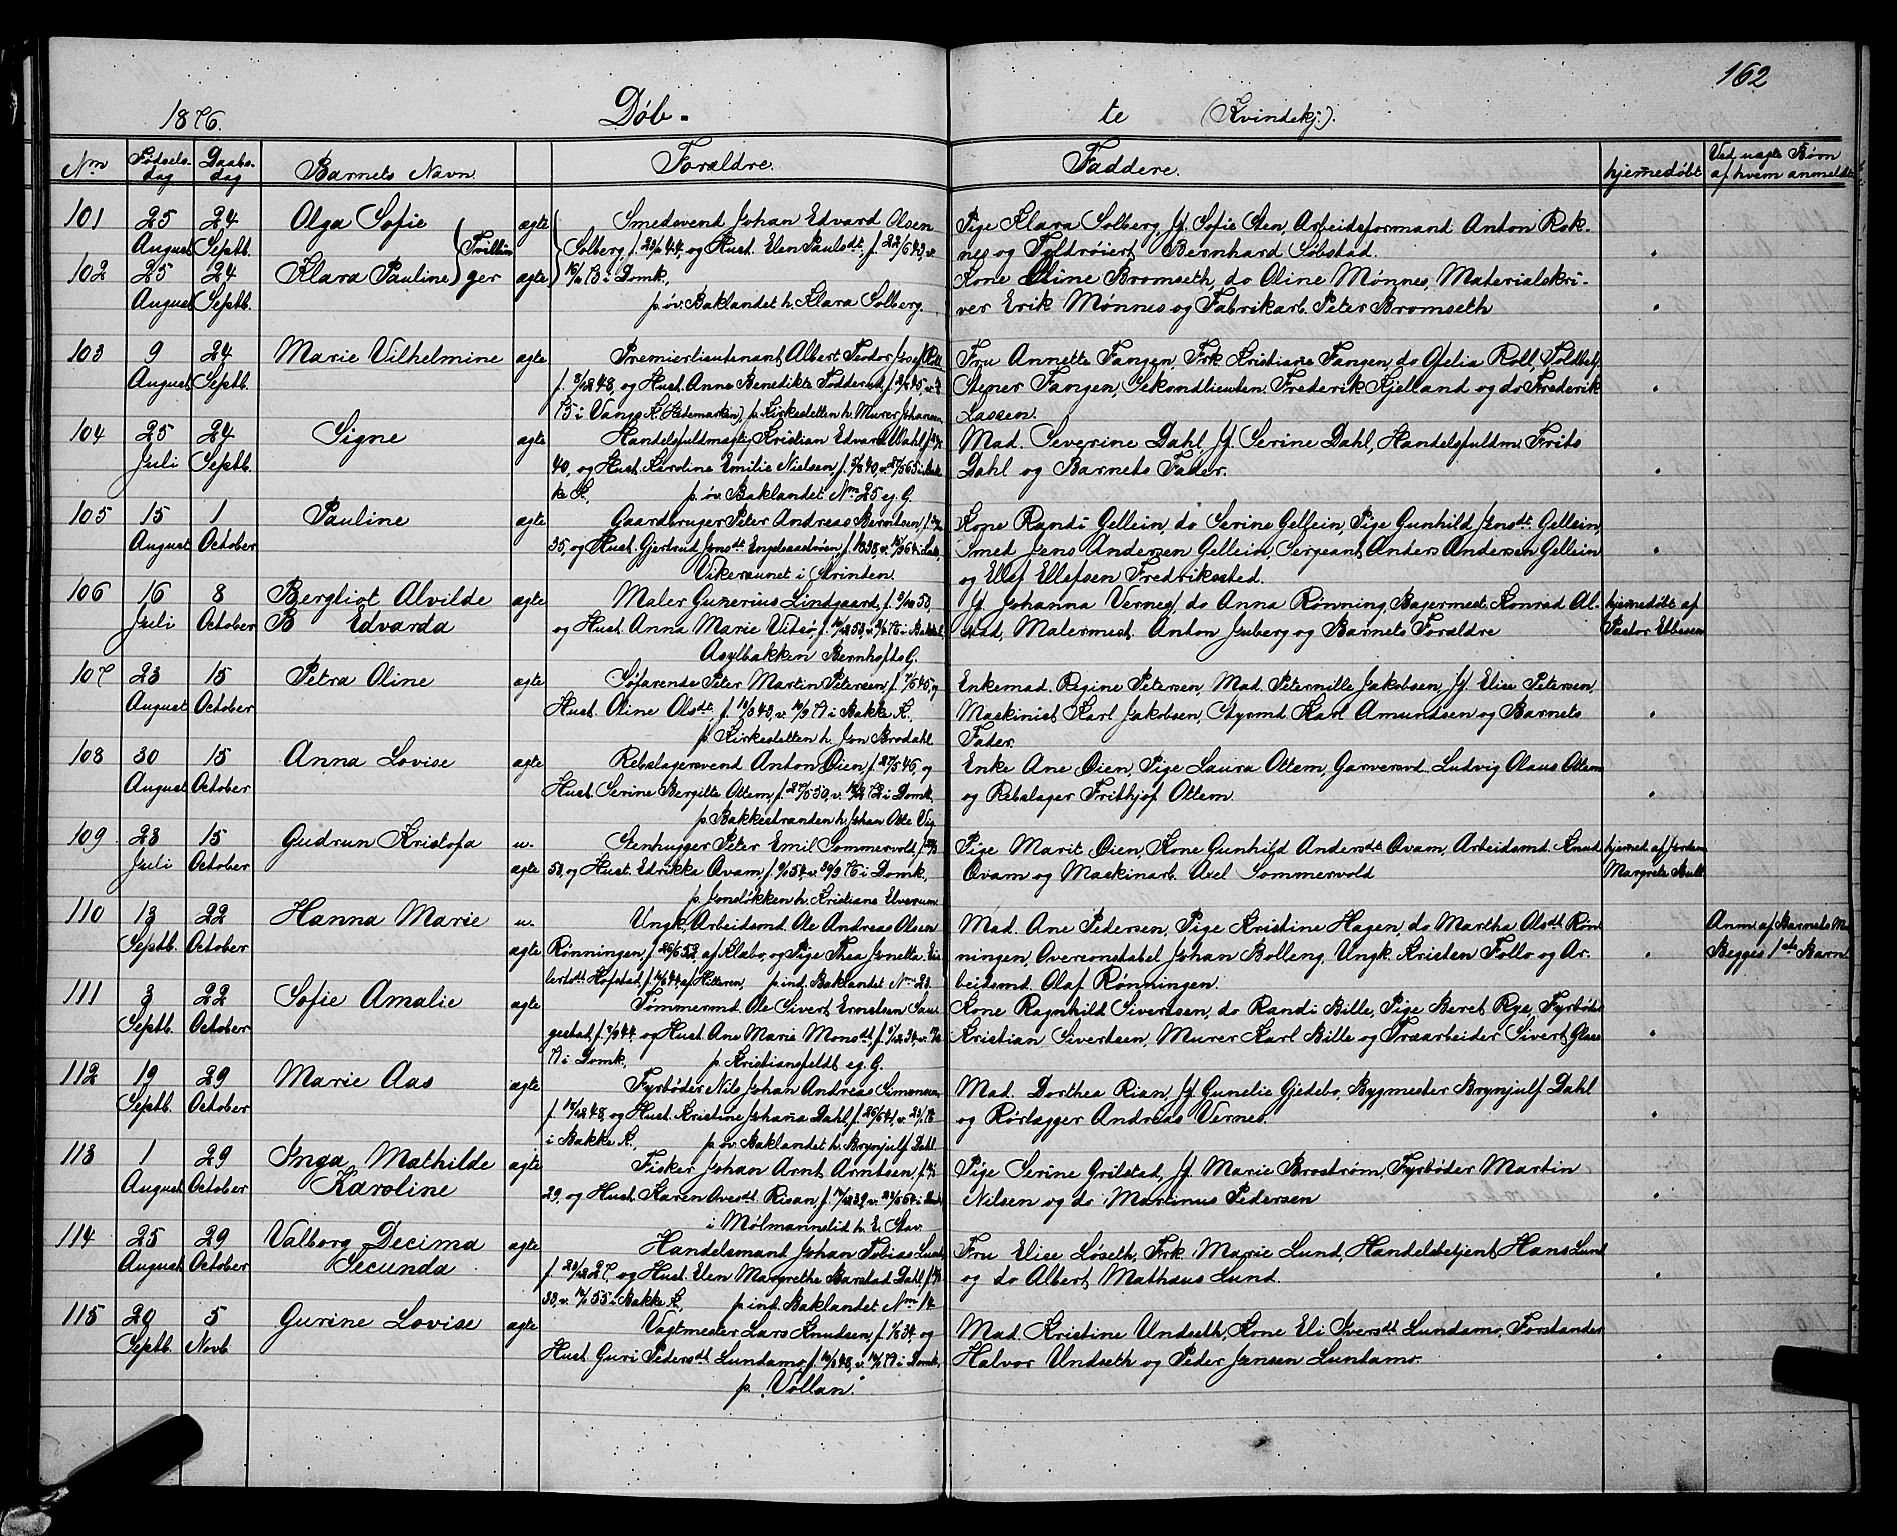 162
1876. Døb- te (Kvindekj.).
Nm Fødsels-dag Daabs-dag Barnets Navn Forældre. Faddere. hjemmedøbt Ved uægte Børn af hvem anmeldt
101 25 August 24 Septb. Olga Sofie (Tvillin- ægte
Smedsvend Johan Edvard Olsen
Solberg, f. 23/1 44, og Hust. Elen Paulsdt., f. 22/6 43, v.
Pige Klara Solberg, Jf. Sofie Sten, Arbeidsformand Anton Rok-
nes og Bernhard Søbstad.
102 25 August 24 Septb. Klara Pauline) ger ægte
73 i Domk.
p. øv. Baklandet h. Klara Solberg.
Kone Oline Bromseth, do Oline Mønnes, Materialskri-
ver Erik Mønnes og Fabrikarb. Peter Bromseth
103 9 August 24 Septb. Marie Vilhelmine ægte
Premierlieutenant Albert Teodor Josef Roll
48, og Hust. Anne Benedikte
75 i Vangs K. (Hedemarken) p. Kirkesletten h. Murer Johansen
Fru Annette Fangen, Frk. Kristiane Fangen, do Ofelia Roll, Toldbetj.
Stener Fangen, Sekondlieuten. Frederik Kjelland og do Frederik
Lassen.
104 25 Juli 24 Septb. Signe ægte
Handelsfuldmægtig Kristian Edvard Wahl,
40, og Hust. Karoline Emilie Nielsen, 40, v. 65 i Bak-
ke K. p. øv. Baklandet Nm 25 eg. G.
Mad. Severine Dahl, Jf. Serine Dahl, Handelsfuldm. Frits
Dahl og Barnets Fader.
105 15 August 1 October Pauline ægte
Gaardbruger Peter Andreas Berntsen,
35, og Hust. Gjertrud Jonsdt. f. 1838, v. 64 i
Vikeraunet i Strinden.
Kone Randi Gellein, do Serine Gellein, Pige Gunhild Jensdt. Gellein,
Smed Jens Andersen Gellein, Sergeant Anders Andersen Gellein
og Ellef Ellefsen Fredriksted.
106 16 Juli 8 October Bergliot Alvilde ægte
B Edvarda
Maler Gunerius Lindgaard, f. 3/10 53,
og Hust. Anna Marie Vitsø, 53, v. 75 i Bakke K.
Asylbakken Bernhofts G.
Jf. Johanna Vernes, do Anna Rønning, Bagermest. Konrad Al-
stad, Malermest. Anton Juberg og Barnets Forældre
hjemmedøbt af
Pastor Ebbesen
107 23 August 15 October Petra Oline ægte
Søfarende Peter Martin Petersen, 45, og
Hust. Oline Olsdt. 43, v. 71 i Bakke K.
p. Kirkesletten h. Jon Brodahl.
Enkemad. Regine Petersen, Mad. Peternille Jakobsen, Jf. Elise Petersen,
Maskinist Karl Jakobsen, Styrmd. Karl Amundsen og Barnets
Fader.
108 30 August 15 October Anna Lovise ægte
Rebslagersvend Anton Øien, f. 27/5 46, og
Hust. Serine Bergitte Ottem, 50, v. 72 i Domk.
p. Bakkestranden h. Johan Otte Vig
Enke Ane Øien, Pige Laura Ottem, Garversvd. Ludvig Olaus Ottem
og Rebslager Frithjof Ottem.
109 23 Juli 15 October Gudrun Kristofa u. ægte
Stenhugger Peter Emil Sommervold,
53, og Hust. Edrikke Qvam, 54, v. 76 i Domk.
p. Jonsløkken h. Kristiane Elverum
Pige Marit Øien, Kone Gunhild Andersdt. Qvam, Arbeidsmd. Knud
Qvam og Maskinarb. Axel Sommervold
hjemmed. af Jordem.
Margrete Bull
110 13 Septb. 22 October Hanna Marie u. ægte
Ungk. Arbeidsmd. Ole Andreas Olsen
Rønningen, f. 26/1 53, af Klæbo, og Pige Thea Jonetta Ei-
lertsdt. Hofstad, 44, af Hitteren. p. ind. Baklandet Nm 23.
Mad. Ane Pedersen, Pige Kristine Hagen, do Martha Olsdt. Røn-
ningen, Overconstabel Johan Bolleng, Ungk. Kristen Follo og Ar-
beidsmd. Olaf Rønningen.
Anm. af Barnets M.
Begges 1ste Barn
111 3 Septb. 22 October Sofie Amalie ægte
Tømmermd. Ole Sivert Erntsen Sau-
gestad, 44, og Hust. Ane Marie Monsdt, 34, v.
71 i Domk. p. Kristiansfeldt eg. G.
Kone Ragnhild Sivertsen, do Randi Bille, Pige Beret Rye, Fyrbøder
Kristian Sivertsen, Murer Karl Bille og Træarbeider Sivert
112 19 Septb. 29 October Marie Aas ægte
Fyrbøder Nils Johan Andreas Simonsen,
48, og Hust. Kristine Johana Dahl, f. 26/6 41, v.
i Bakke K. p. øv. Baklandet h. Brynjulf Dahl
Mad. Dorthea Rian, Jf. Gunelie Gjedebo, Bygmester Brynjulf Dahl
og Rørlægger Andreas Vernes.
113 1 August 29 October Inga Mathilde ægte
Karoline
Fisker Johan Arnt Arntsen,
29, og Hust. Karen Ovesdt. Risan, 39, v. 64 i
i Mølmannslid h. E. Stav.
Pige Serine Grilstad, Jf. Marie Brostrøm, Fyrbøder Martin
Nilsen og do Martinus Pedersen
114 25 August 29 October Valborg Decima ægte
Secunda
Handelsmand Johan Tobias Lund
f. 23/12 27, og Hust. Elen Margrethe Barstad Dahl,
33, v. 55 i Bakke K. p. ind. Baklandet Nm 14
Fru Elise Løseth, Frk. Marie Lund, Handelsbetjent Hans Lund
og do Albert Mathæus Lund.
115 20 Septb. 5 Novb Gurine Lovise ægte
Vagtmester Lars Knudsen, 34, og
Hust. Guri Pedersdt. Lundamo, 48, v. 71 i Domk.
p. "Vollan."
Mad. Kristine Undseth, Kone Eli Iversdt. Lundamo, Forstander
Halvor Undseth og Peder Jensen Lundamo.